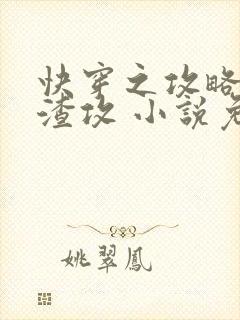 快穿之攻略
渣攻 小說免
姚翠鳳